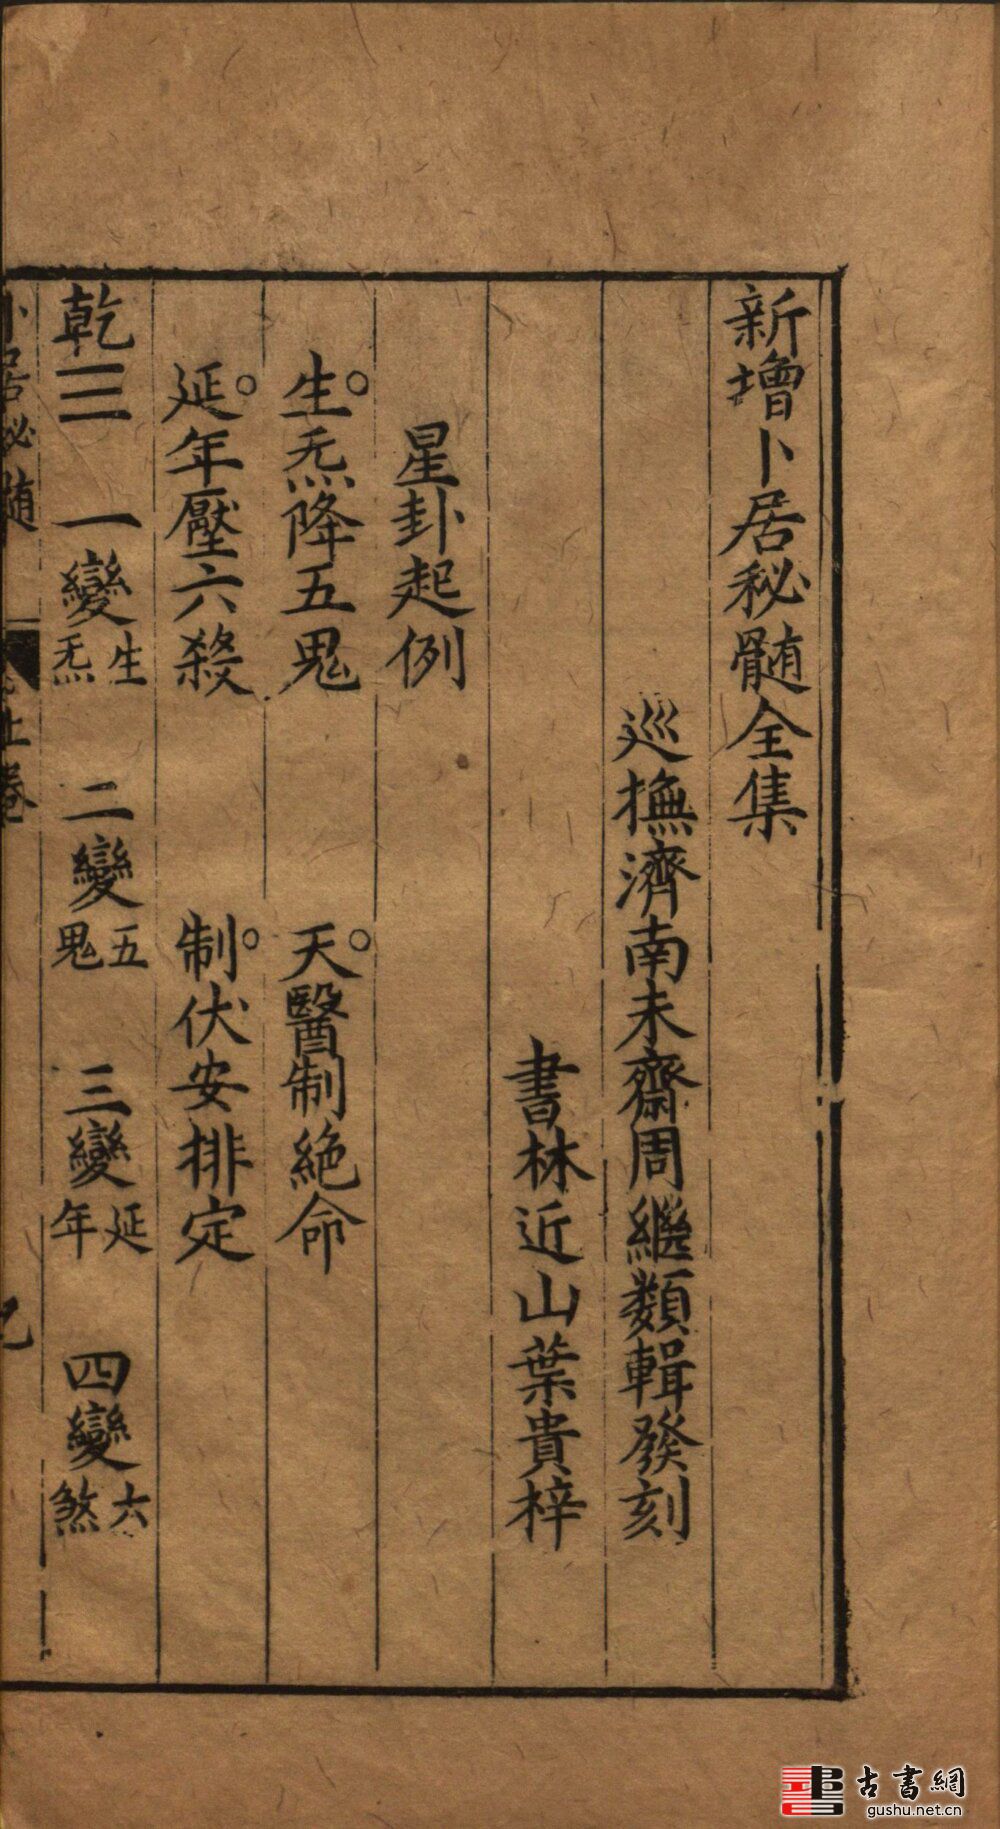 新增卜居秘髓全集
巡撫濟南未齋周繼類輯發刻
書林近山葉貴梓
星卦起例
生炁降五鬼 天醫制絕命
延年壓六殺 制伏安排定
乾☰ 一變生炁 二變五鬼 三變延年 四變六煞
卜居秘髓 上卷
古書網
gushu.net.cn